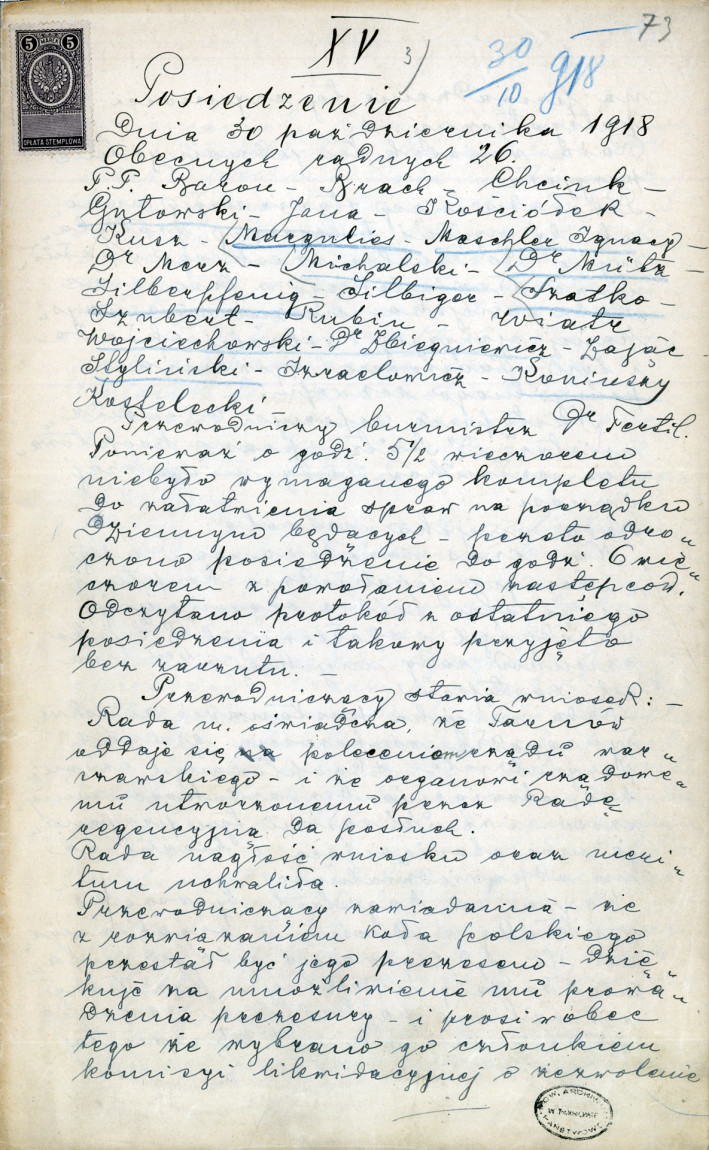 73
XV
3)
30/10 918
5 MAREK 5
OPŁATA STEMPLOWA
Posiedzenie
Dnia 30 października 1918
Obecnych radnych 26.
P.P. Baron - Brach - Chciuk -
Gutowski - Jana - Kościółek -
Kusz - Margulies - Maschler Ignacy -
Dr Merz - Michalski - Dr Mütz -
Silberpfenig - Silbiger - Szatko -
Szubert - Rubin - Wiatr
Wojciechowski - Dr Zbiegniewicz - Zając -
Styliński - Izraelowicz - Koniuszy
Kostelecki -
Przewodniczy burmistrz Dr Tertil.
Ponieważ o godź. 5 1/2 wieczorem
niebyło wymaganego kompletu
do załatwienia spraw na porządku
dziennym będących - przeto odro„
czono posiedzenie do godź. 6 wie„
czorem z powołaniem zastępców.
Odczytano protokół z ostatniego
posiedzenia i takowy przyjęto
bez zarzutu. -
Przewodniczący stawia wniosek: -
Rada m. oświadcza, że Tarnów
oddaje się poleceniom rządu war„
szawskiego - i że organowi rządowe„
mu utworzonemu przez Radę
regencyjną da posłuch.
Rada nagłość wniosku oraz meri„
tum uchwaliła.
Przewodniczący zawiadamia - że
z rozwiązaniem Koła polskiego
przestał być jego prezesem - dzię„
kuje za umożliwienie mu prowa„
dzenia prezesury - i prosi wobec
tego że wybrano go członkiem
komisyi likwidacyjnej o zezwolenie
ARCHIWUM
W TARNOWIE
PAŃSTWOWE